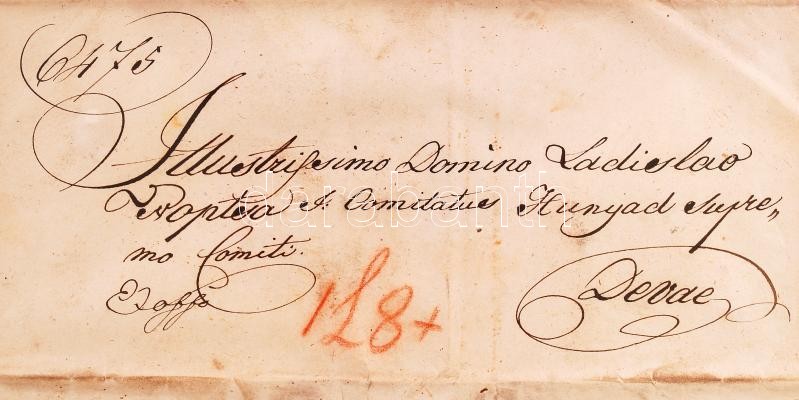 6475
Illustrissimo Domino Ladislao
Poptsa I. Comitatus Hunyad Supre„
mo Comiti.
Devae
Ex offo
128+
darabanth